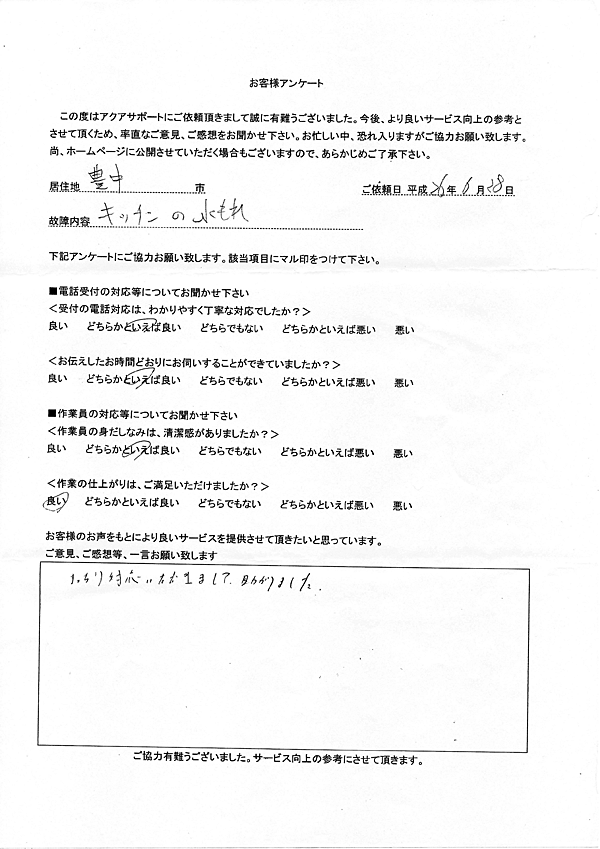 お客様アンケート
この度はアクアサポートにご依頼頂きまして誠に有難うございました。今後、より良いサービス向上の参考と
させて頂くため、率直なご意見、ご感想をお聞かせ下さい。お忙しい中、恐れ入りますがご協力お願い致します。
尚、ホームページに公開させていただく場合もございますので、あらかじめご了承下さい。
居住地 豊中 市 ご依頼日 平成 26 年 6 月 28 日
故障内容 キッチンの水もれ
下記アンケートにご協力お願い致します。該当項目にマル印をつけて下さい。
■電話受付の対応等についてお聞かせ下さい
<受付の電話対応は、わかりやすく丁寧な対応でしたか?>
良い どちらかといえば良い どちらでもない どちらかといえば悪い 悪い
<お伝えしたお時間どおりにお伺いすることができていましたか?>
良い どちらかといえば良い どちらでもない どちらかといえば悪い 悪い
■作業員の対応等についてお聞かせ下さい
<作業員の身だしなみは、清潔感がありましたか?>
良い どちらかといえば良い どちらでもない どちらかといえば悪い 悪い
<作業の仕上がりは、ご満足いただけましたか?>
良い どちらかといえば良い どちらでもない どちらかといえば悪い 悪い
お客様のお声をもとにより良いサービスを提供させて頂きたいと思っています。
ご意見、ご感想等、一言お願い致します
助かりました。
ご協力有難うございました。サービス向上の参考にさせて頂きます。